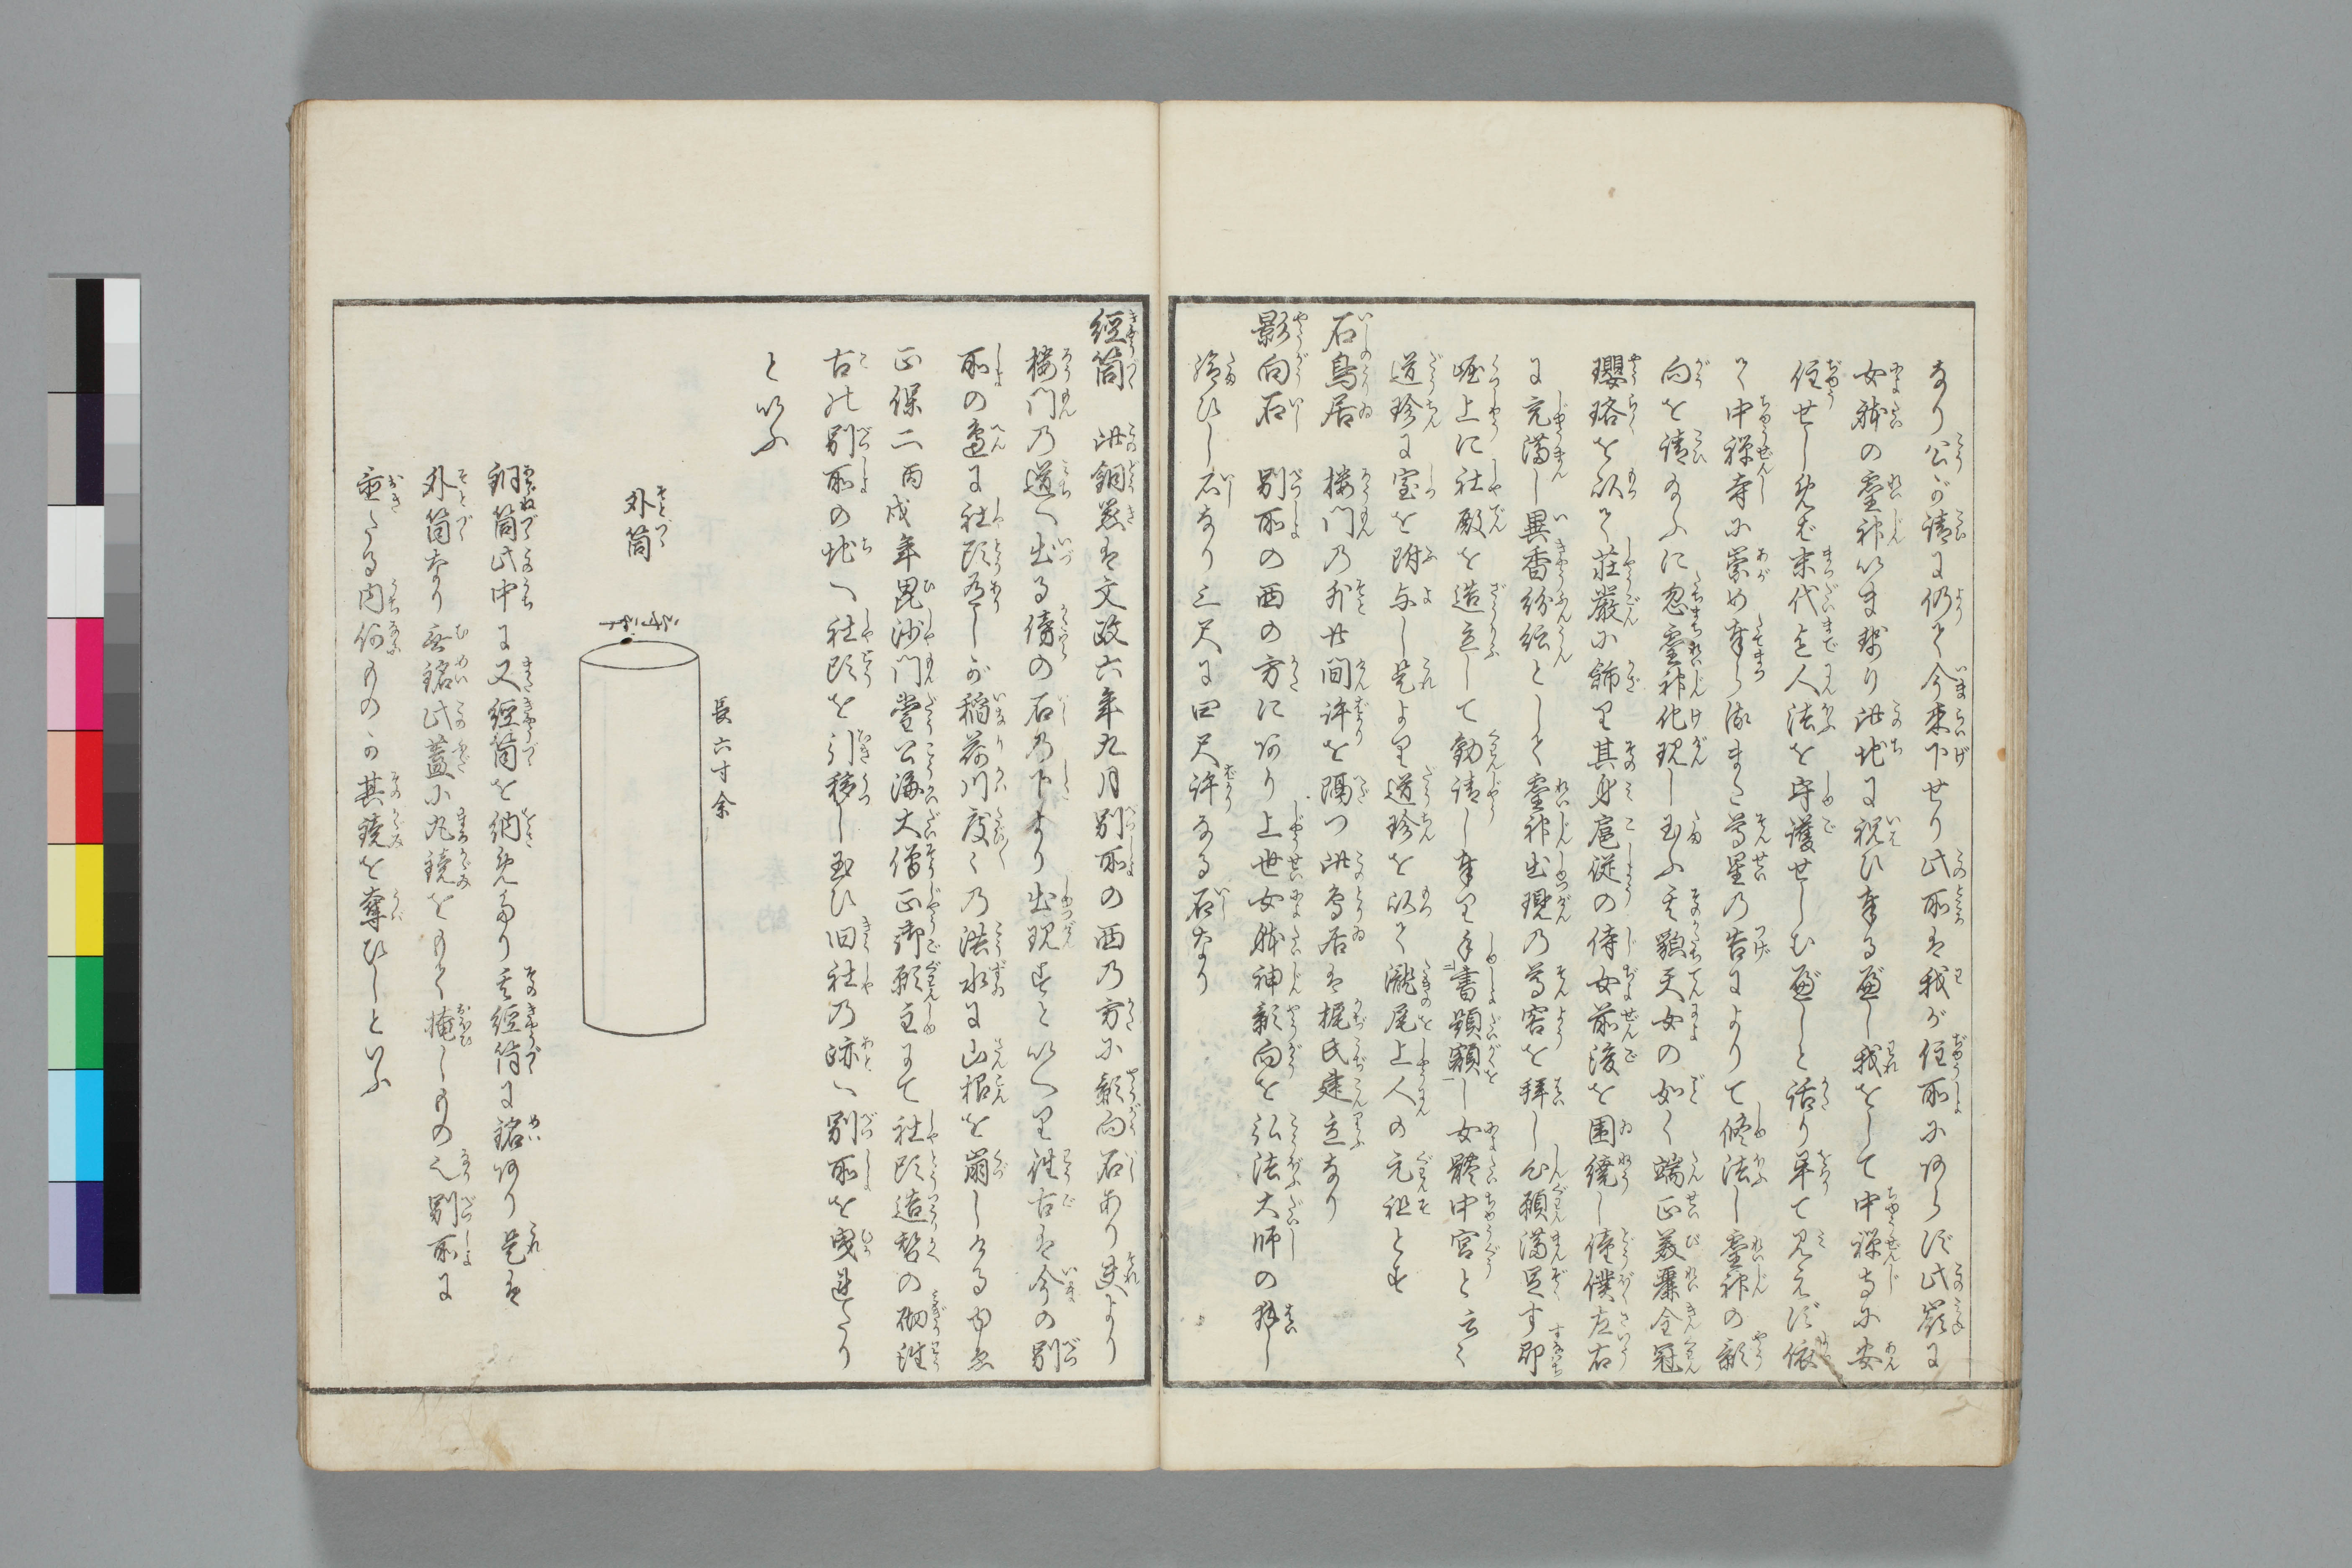 なり公が請に仍て今来下せり此所は我が住所にあらず此嶺に
女躰の霊神います移り此地に祝ひ奉る座し我をして中禅寺に安
住せしめば末代迄人法を守護せしむ座しと語り畢て見えず依
て中禅寺に崇め奉らるまた尊星の告によりて修法し霊神の影
向を請給ふに忽霊神化現し玉ふ其貌天女の如く端正美麗金冠
瓔珞を以て荘厳に飾里其身扈従の侍女前後を囲繞し倖僕左右
に充満し異香紛紜として霊神出現の尊容を拝し心願満足す即
崛上に社殿を造立して勧請し奉里手書題額し女體中宮と云く
道珍に室を附与し是より道珍を以て瀧尾上人の元祖とす
石鳥居 楼門の外廿間許を隔つ此鳥居は梶氏建立なり
影向石 別所の西の方にあり上世女躰神影向を弘法大師の拝し
給ひし石なり三尺に四尺許なる石なり
経筒 此銅器は文政六年九月別所の西の方に影向石あり夫より
楼門の道へ出る傍の石の下より出現すといへり往古は今の別
所の邊に社頭有しが稲荷川度々の洪水に山根を崩しけるゆゑ
正保二丙戌年毘沙門堂公海大僧正御願主にて社頭造替の砌往
古の別所の地へ社頭を引移し玉ひ旧社の跡へ別所を曳建たり
といふ
外筒
長六寸余
銅筒此中に又経筒を納めたり其経筒に銘あり是は
外筒なり無銘此蓋に丸鏡をもて掩しもの也別所に
重たる内何ものか其鏡を奪ひしといふ